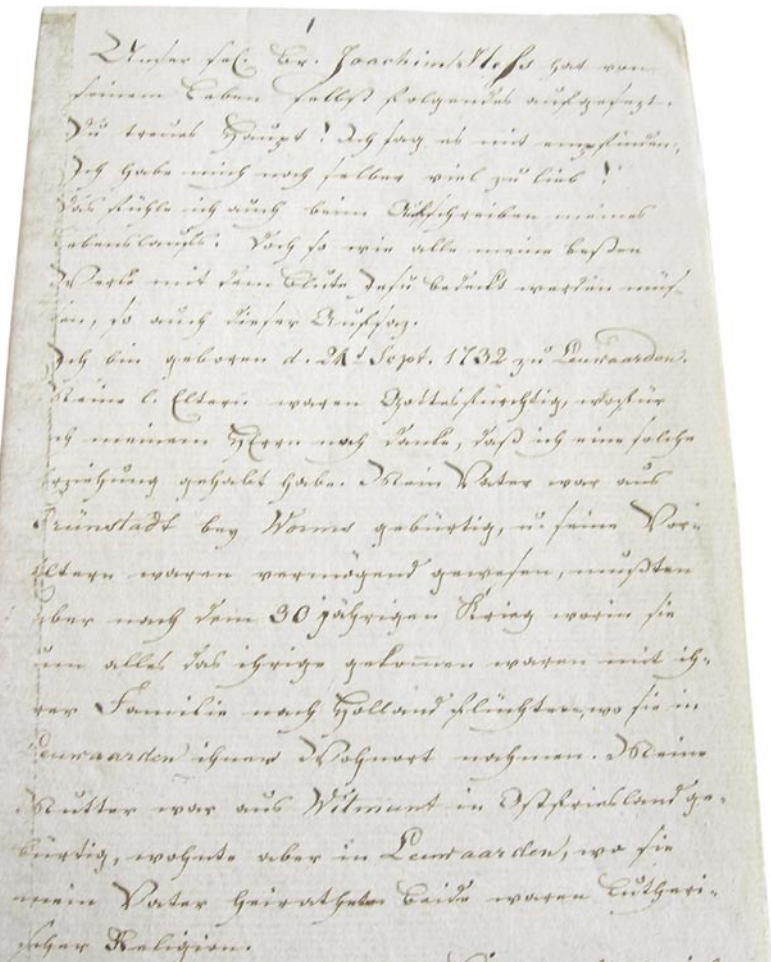 1
Unser sel. Br. Joachim hat von
seinem Leben selbst folgendes aufgesezt.
Du treues Haupt! Ich sag es mit empfinden,
Ich habe mich noch selber viel zu lieb!
Das fühle ich auch beim Aufschreiben meines
Lebenslaufs. Doch so wie alle meine besten
Werke mit dem Blute Jesu bedeckt werden müs-
sen, so auch dieser Aufsaz.
Ich bin geboren d. 24t Sept. 1732 zu Leuwaarden.
Meine l. Eltern waren Gottesfürchtig, wofür
ich meinem HErrn noch danke, daß ich eine solche
Erziehung gehabt habe. Mein Vater war aus
Grünstadt bey Worms gebürtig, u. seine Vor-
Eltern waren vermögend gewesen, mußten
aber nach dem 30 jährigen Krieg worin sie
um alles das ihrige gekommen waren mit ih-
rer Familie nach Holland flüchten, wo sie in
Leuwaarden ihren Wohnort nahmen. Meine
Mutter war aus Witmunt in Ostfriesland ge-
bürtig, wohnte aber in Leuwaarden, wo sie
mein Vater heirathete Beide waren Lutheri-
scher Religion.